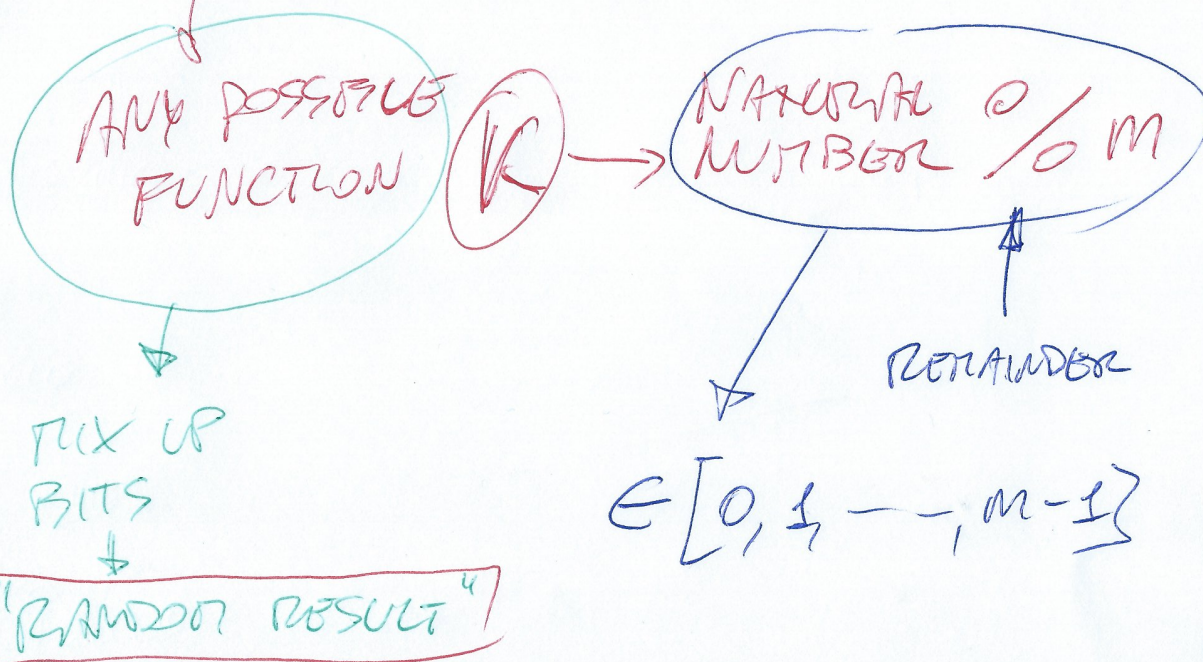 ANY POSSIBLE
FUNCTION
K
NATURAL
NUMBER % m
REMAINDER
MIX UP
BITS
"RANDOM RESULT"
∈ [0, 1, ---, m-1}